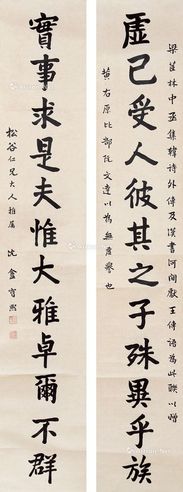 梁茝林中丞集韓詩外傳及漢書河間獻王傳語為此聯以贈
虛己受人彼其之子殊異乎族
黃右原比部阮文達以為無虛譽也
實事求是夫惟大雅卓爾不群
松谷仁兄大人雅屬
沈盦寶熙